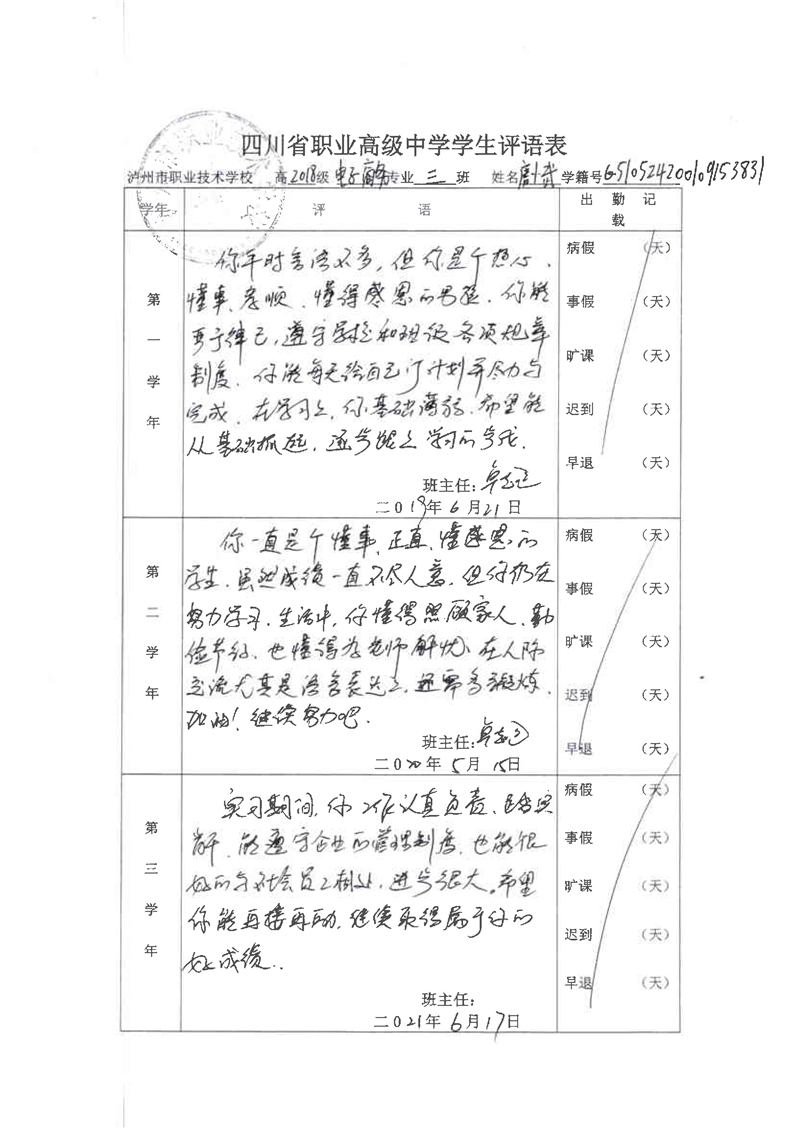 四川省职业高级中学学生评语表
泸州市职业技术学校 高2018级 电子商务专业 三 班 姓名 学籍号G510524200109153831
学年 评 语 出 勤 记 载
第一学年
你平时言语不多，但你是个热心、
懂事、孝顺、懂得感恩的男孩。你能
严于律己，遵守学校和班级各项规章
制度。你能每天给自己订计划并尽力与
完成。在学习上，你基础薄弱，希望能
从基础抓起，逐步跟上学习的步伐。
班主任：
二〇19年6月21日
病假 （天）
事假 （天）
旷课 （天）
迟到 （天）
早退 （天）
第二学年
你一直是个懂事、正直、懂感恩的
学生，虽然成绩一直不尽人意，但你仍在
努力学习。生活中，你懂得照顾家人、勤
俭节约、也懂得为老师解忧、在人际
交流尤其是语言表达上，还需多锻炼。
加油！继续努力吧。
班主任：
二〇20年5月15日
病假 （天）
事假 （天）
旷课 （天）
迟到 （天）
早退 （天）
第三学年
实习期间，你工作认真负责、踏实
肯干，能遵守企业的管理制度，也能很
好的与社会员工相处，进步很大。希望
你能再接再励，继续取得属于你的
好成绩..
班主任：
二〇21年6月17日
病假 （天）
事假 （天）
旷课 （天）
迟到 （天）
早退 （天）